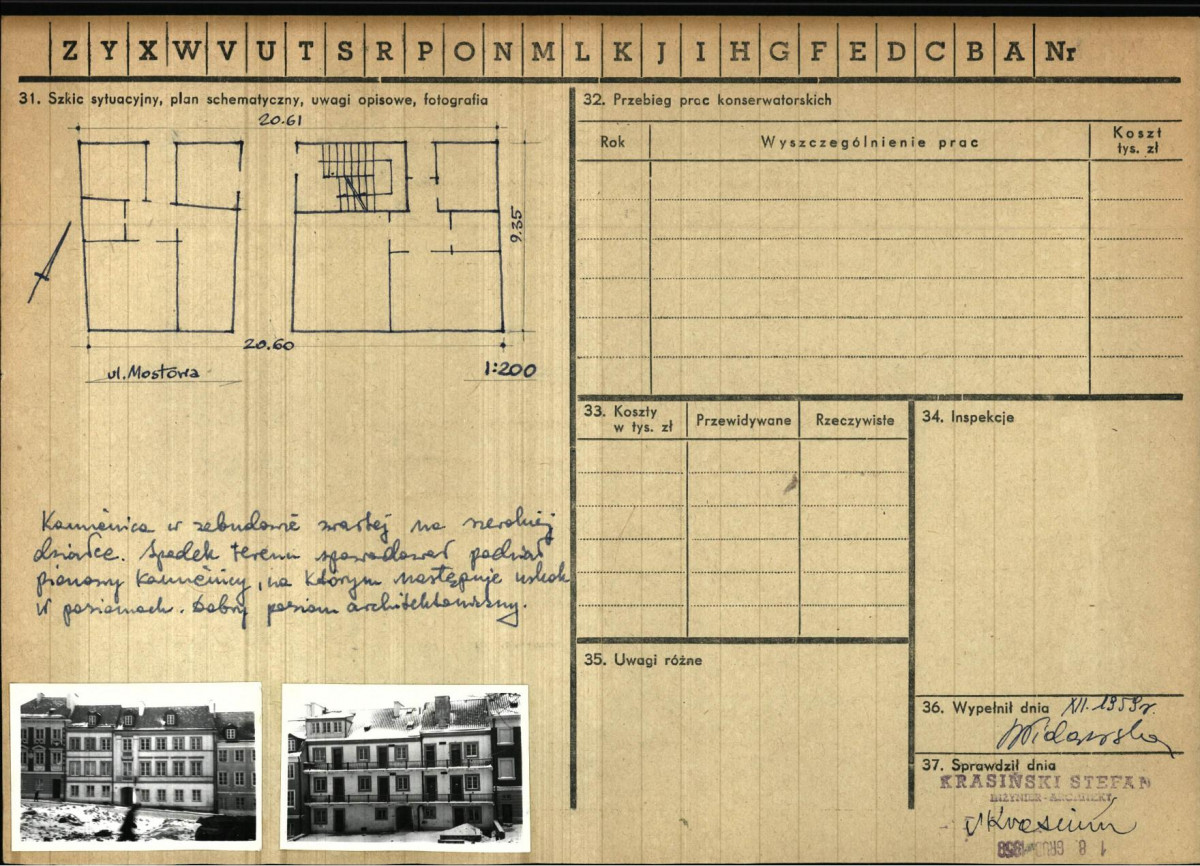 Z Y X W V U T S R P O N M L K J I H G F E D C B A Nr
31. Szkic sytuacyjny, plan schematyczny, uwagi opisowe, fotografia
20.61
9.35
20.60
ul. Mostowa
1:200
Kamienica w zabudowie zwartej na szerokiej
działce. Spadek terenu spowodował podział
pionowy kamienicy, na którym następuje uskok
w poziomach. Dobry poziom architektoniczny.
32. Przebieg prac konserwatorskich
Rok
Wyszczególnienie prac
Koszt
tys. zł
33. Koszty
w tys. zł
Przewidywane
Rzeczywiste
34. Inspekcje
35. Uwagi różne
36. Wypełnił dnia XII.1959r.
37. Sprawdził dnia
KRASIŃSKI STEFAN
INŻYNIER-ARCHITEKT